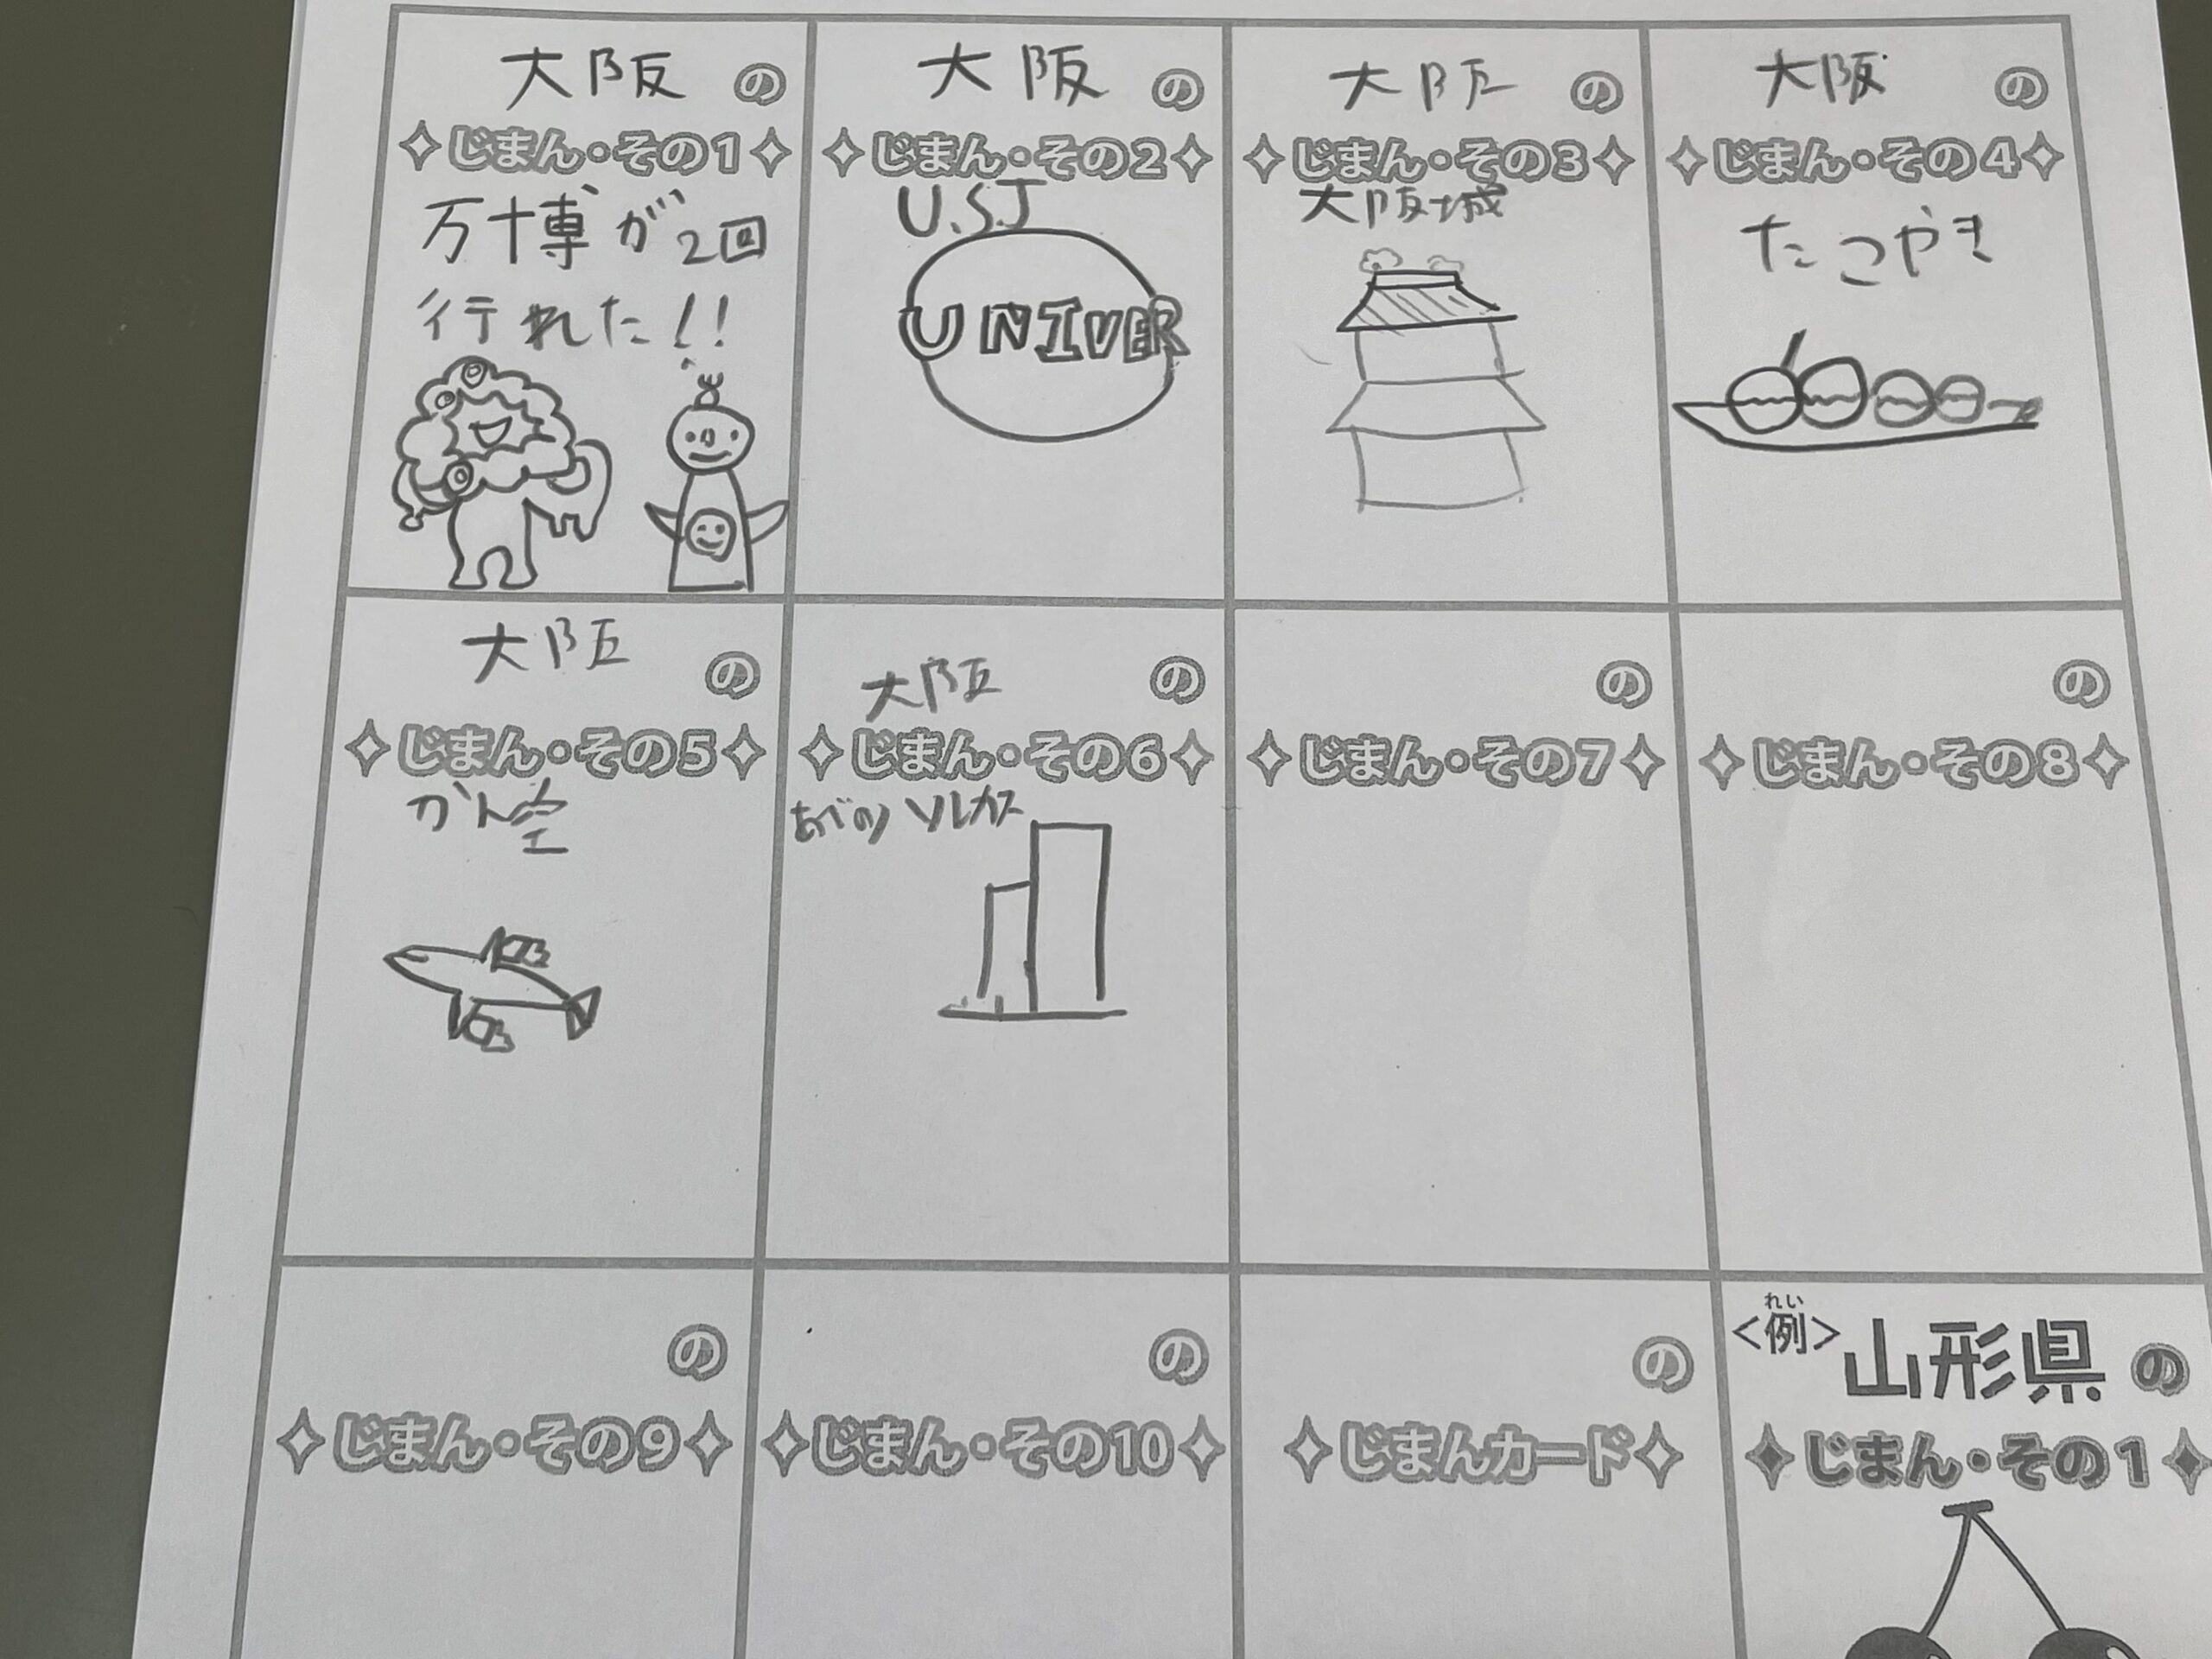 大阪の
じまん・その1
万博が2回
行れた!!
大阪の
じまん・その2
U.S.J
UNIVER
大阪の
じまん・その3
大阪城
大阪の
じまん・その4
たこやき
大阪の
じまん・その5
かん空
大阪の
じまん・その6
あべのハルカス
の
じまん・その7
の
じまん・その8
の
じまん・その9
の
じまん・その10
の
じまんカード
れい
<例>山形県の
じまん・その1